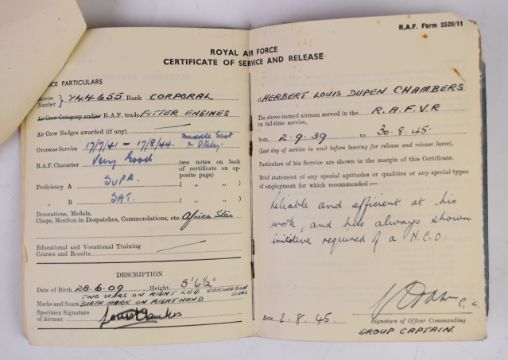 R.A.F. Form 2520/11
ROYAL AIR FORCE
CERTIFICATE OF SERVICE AND RELEASE
SERVICE PARTICULARS
Service Number 744655 Rank CORPORAL
Air Crew Category and/or R.A.F. trade FITTER ENGINES
Air Crew Badges awarded (if any)
Overseas Service 17/7/41 — 17/8/44. Middle East & Italy.
R.A.F. Character Very Good (see notes on back of certificate on opposite page)
Proficiency A SUPR. ( " " )
" B SAT. ( " " )
Decorations, Medals,
Clasps, Mention in Despatches, Commendations, etc. Africa Star
Educational and Vocational Training
Courses and Results
DESCRIPTION
Date of Birth 28.6.09 Height 5' 6½"
Marks and Scars TWO SCARS ON RIGHT LEG VACCINATION SCARS
BIRTH MARK ON RIGHT HAND
Specimen Signature
of Airman
HERBERT LOUIS DUPEN CHAMBERS
The above-named airman served in the R.A.F.V.R
on full-time service,
from 2.9.39 to 30.8.45.
(Last day of service in unit before leaving for release and release leave).
Particulars of his Service are shown in the margin of this Certificate.
Brief statement of any special aptitudes or qualities or any special types
of employment for which recommended :—
Reliable and efficient at his
work, and has always shown
initiative required of a N.C.O.
Date 2.8.45.
Signature of Officer Commanding
GROUP CAPTAIN.